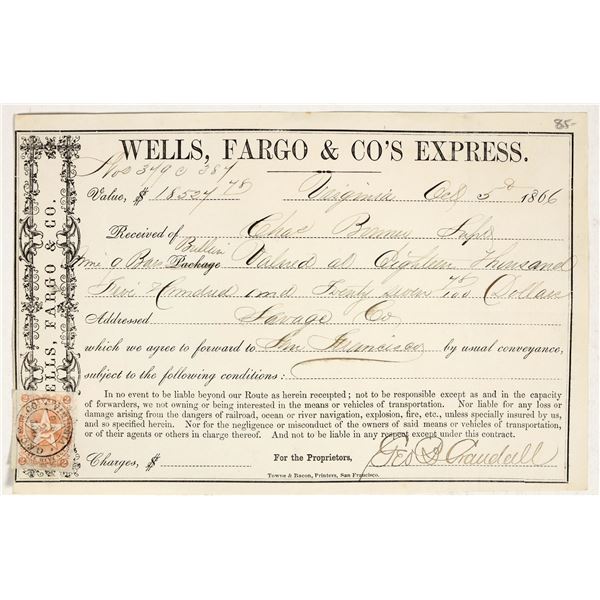 85-
WELLS, FARGO & CO'S EXPRESS.
Nos 379 @ 387
Value, $ 18527 78 Virginia Oct 3d 1866
Received of Chas Bonner Supt
Bullion
Bars Package Valued at Eighteen Thousand
Five Hundred and Twenty Seven 78/100 Dollars
Addressed Savage Co
which we agree to forward to San Francisco by usual conveyance,
subject to the following conditions:
In no event to be liable beyond our Route as herein receipted; not to be responsible except as and in the capacity
of forwarders, we not owning or being interested in the means or vehicles of transportation. Nor liable for any loss or
damage arising from the dangers of railroad, ocean or river navigation, explosion, fire, etc., unless specially insured by us,
and so specified herein. Nor for the negligence or misconduct of the owners of said means or vehicles of transportation,
or of their agents or others in charge thereof. And not to be liable in any respect except under this contract.
Charges, $ For the Proprietors, Geo D Crandall
Towne & Bacon, Printers, San Francisco.
WELLS, FARGO & CO.